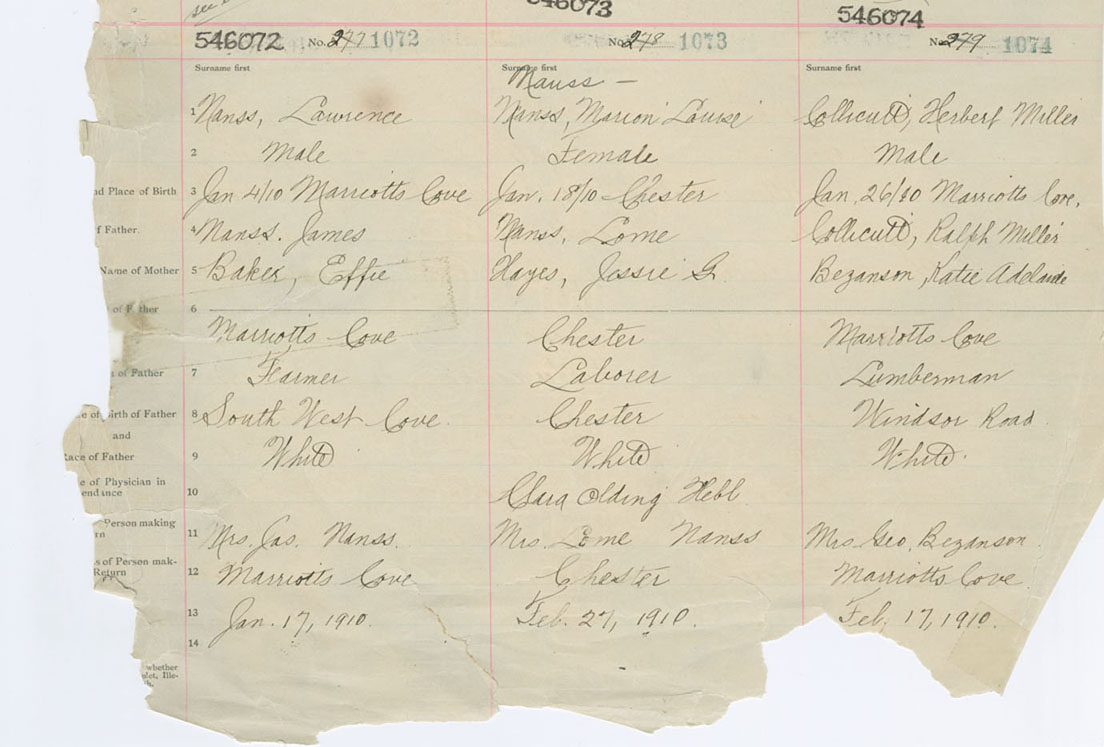 see
546073
546074
546072 No. 277 1072 No. 278 1073 No. 279 1074
Surname first Surname first Surname first
Mauss —
1 Nanss, Lawrence Nanss, Marion Louise Collicutt, Herbert Miller
2 Male Female Male
nd Place of Birth 3 Jan 4/10 Marriotts Cove Jan. 18/10 - Chester Jan. 26/10 Marriotts Cove,
f Father. 4 Nanss. James Nanss, Lorne Collicutt, Ralph Miller
Name of Mother 5 Baker, Effie Hayes, Jessie G. Bezanson, Katie Adelaide
of F ther 6
Marriotts Cove Chester Marriotts Cove
of Father 7 Farmer Laborer Lumberman
e of Birth of Father 8 South West Cove. Chester Windsor Road
and
Race of Father 9 White White White
e of Physician in
endance 10 Clara Olding Hebb
Person making
rn 11 Mrs. Jas. Nanss. Mrs. Lorne Nanss Mrs. Geo. Bezanson
s of Person mak-
Return 12 Marriotts Cove Chester Marriotts Cove
13 Jan. 17, 1910. Feb. 27, 1910. Feb. 17, 1910.
14
whether
let, Ille-
h.